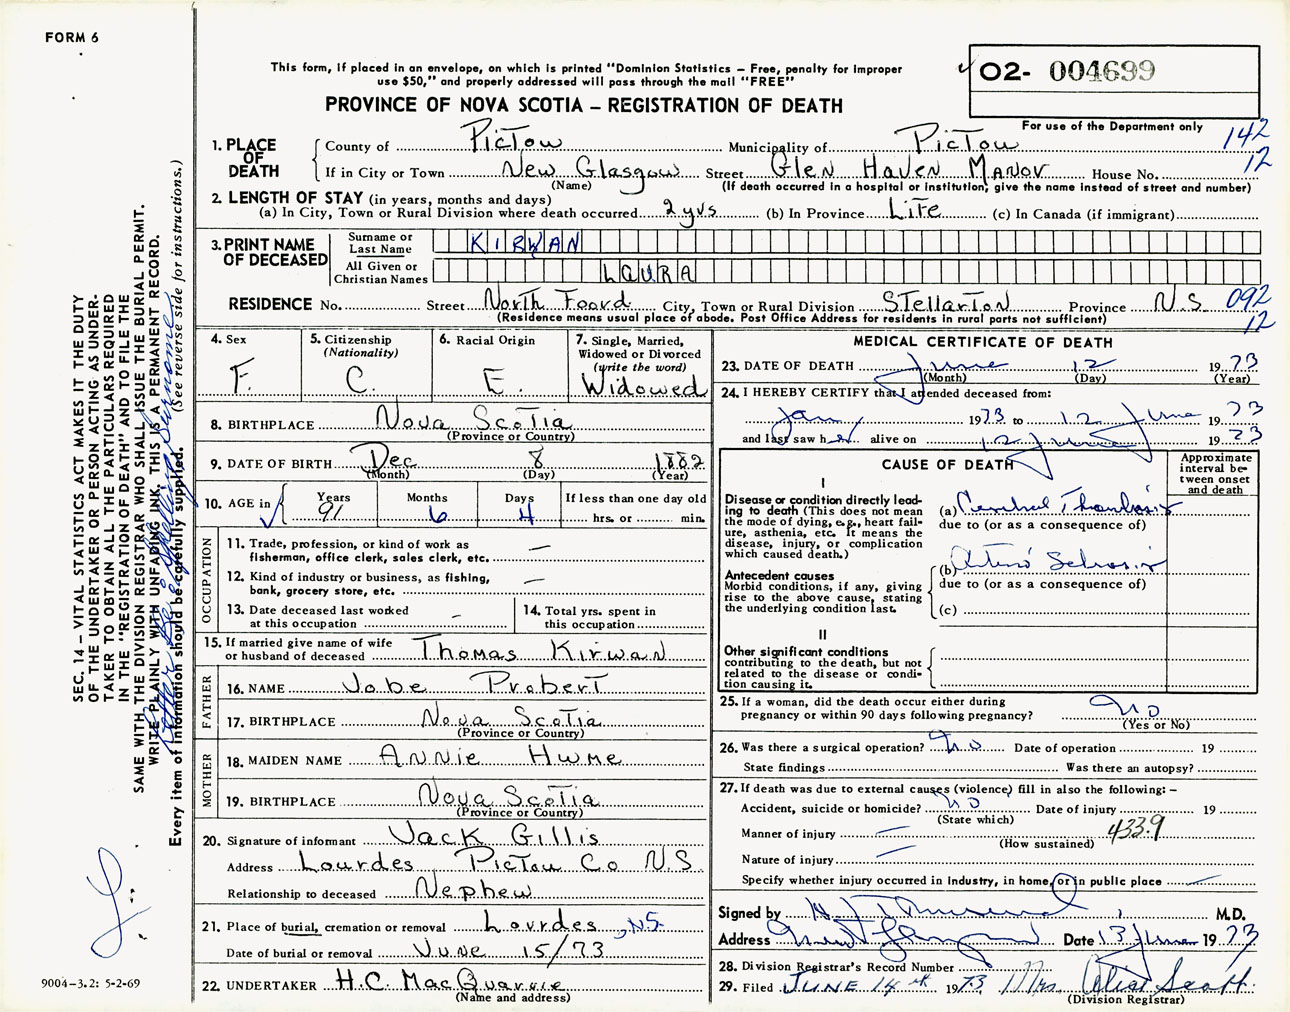 FORM 6
This form, if placed in an envelope, on which is printed "Dominion Statistics – Free, penalty for improper
use $50," and properly addressed will pass through the mail "FREE"
PROVINCE OF NOVA SCOTIA – REGISTRATION OF DEATH
O2- 004699
For use of the Department only
142
12
1. PLACE OF DEATH
County of Pictou Municipality of Pictou
If in City or Town New Glasgow Street Glen Haven Manor House No.
(Name) (If death occurred in a hospital or institution, give the name instead of street and number)
2. LENGTH OF STAY (in years, months and days)
(a) In City, Town or Rural Division where death occurred 2 yrs (b) In Province Life (c) In Canada (if immigrant)
3. PRINT NAME OF DECEASED
Surname or Last Name KIRWAN
All Given or Christian Names LAURA
RESIDENCE No. Street North Foord City, Town or Rural Division Stellarton Province N.S. 092
(Residence means usual place of abode. Post Office Address for residents in rural parts not sufficient)
12
4. Sex F.
5. Citizenship (Nationality) C.
6. Racial Origin E.
7. Single, Married, Widowed or Divorced (write the word) Widowed
8. BIRTHPLACE Nova Scotia
(Province or Country)
9. DATE OF BIRTH Dec 8 1882
(Month) (Day) (Year)
10. AGE in Years 91 Months 6 Days 4 If less than one day old hrs. or min.
OCCUPATION
11. Trade, profession, or kind of work as fisherman, office clerk, sales clerk, etc. —
12. Kind of industry or business, as fishing, bank, grocery store, etc. —
13. Date deceased last worked at this occupation –
14. Total yrs. spent in this occupation
15. If married give name of wife or husband of deceased Thomas Kirwan
FATHER
16. NAME Jobe Probert
17. BIRTHPLACE Nova Scotia
(Province or Country)
MOTHER
18. MAIDEN NAME Annie Hume
19. BIRTHPLACE Nova Scotia
(Province or Country)
20. Signature of informant Jack Gillis
Address Lourdes Pictou Co N.S.
Relationship to deceased Nephew
21. Place of burial, cremation or removal Lourdes, N.S.
Date of burial or removal June 15/73
22. UNDERTAKER H.C. MacQuarrie
(Name and address)
MEDICAL CERTIFICATE OF DEATH
23. DATE OF DEATH June 12 1973
(Month) (Day) (Year)
24. I HEREBY CERTIFY that I attended deceased from:
Jan 1973 to 12 June 1973
and last saw her alive on 12 June 1973
CAUSE OF DEATH
Approximate interval between onset and death
I
Disease or condition directly leading to death (This does not mean the mode of dying, e.g., heart failure, asthenia, etc. It means the disease, injury, or complication which caused death.)
(a) Cerebral Thrombosis
due to (or as a consequence of)
Antecedent causes
Morbid conditions, if any, giving rise to the above cause, stating the underlying condition last.
(b) Arterio Sclerosis
due to (or as a consequence of)
(c)
II
Other significant conditions
contributing to the death, but not related to the disease or condition causing it.
25. If a woman, did the death occur either during pregnancy or within 90 days following pregnancy? No
(Yes or No)
26. Was there a surgical operation? No Date of operation 19
State findings Was there an autopsy?
27. If death was due to external causes (violence) fill in also the following: –
Accident, suicide or homicide? no Date of injury 19
(State which)
Manner of injury — 433.9
(How sustained)
Nature of injury —
Specify whether injury occurred in industry, in home, or in public place —
Signed by M.D.
Address New Glasgow Date 13 June 1973
28. Division Registrar's Record Number
29. Filed June 14th 1973 Mrs. Scott
(Division Registrar)
SEC. 14 – VITAL STATISTICS ACT MAKES IT THE DUTY
OF THE UNDERTAKER OR PERSON ACTING AS UNDER-
TAKER TO OBTAIN ALL THE PARTICULARS REQUIRED
IN THE "REGISTRATION OF DEATH" AND TO FILE THE
SAME WITH THE DIVISION REGISTRAR WHO SHALL ISSUE THE BURIAL PERMIT.
WRITE PLAINLY WITH UNFADING INK. THIS IS A PERMANENT RECORD.
Every item of information should be carefully supplied. (See reverse side for instructions.)
9004-3.2: 5-2-69